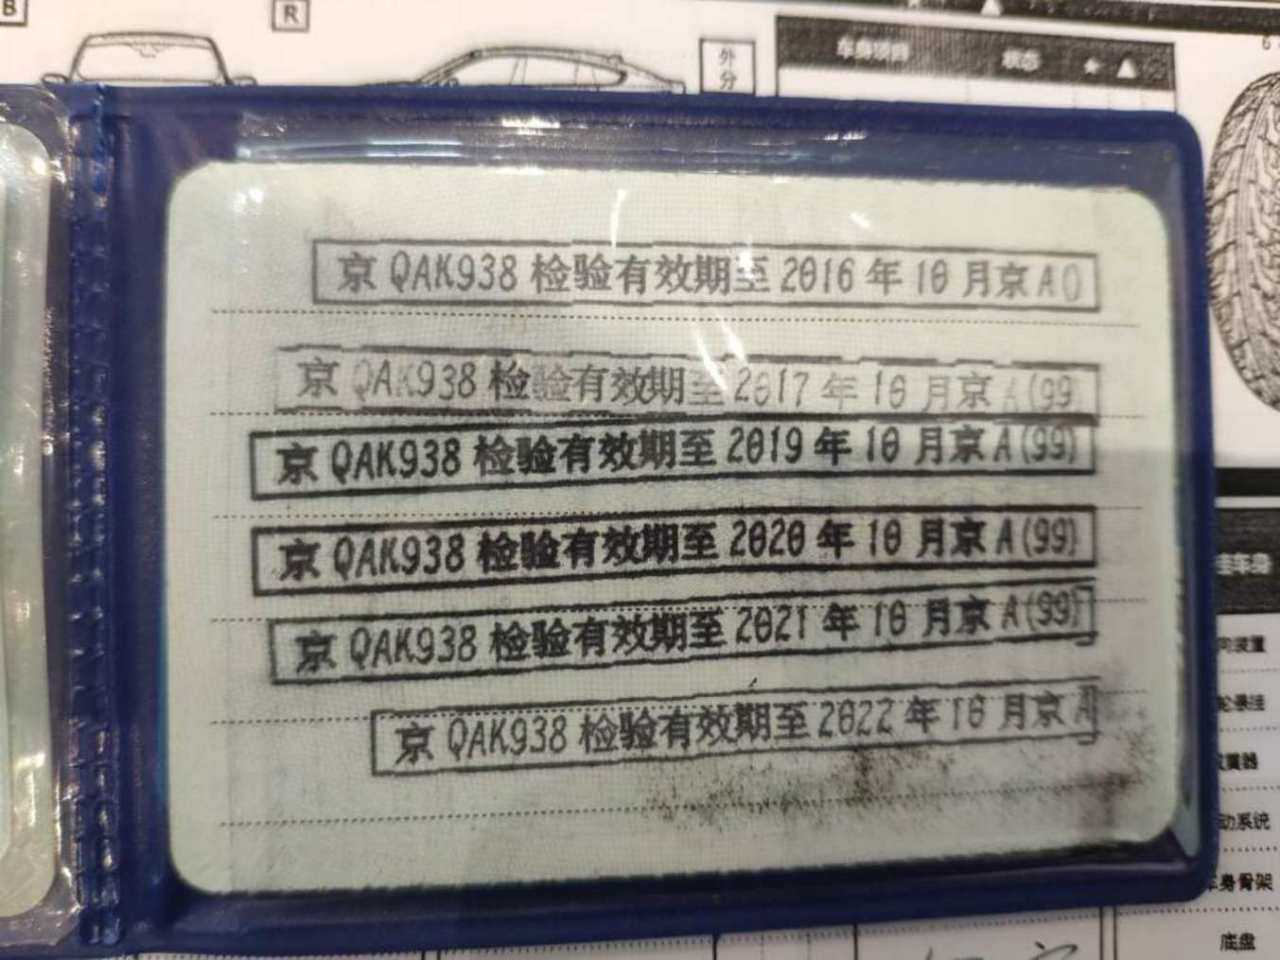 B
R
外
分
车身项目 状态 ★ ▲
京 QAK938 检验有效期至 2016 年 10 月京 A()
京 QAK938 检验有效期至 2017 年 10 月京 A(99
京 QAK938 检验有效期至 2019 年 10 月京 A(99)
京 QAK938 检验有效期至 2020 年 10 月京 A(99)
京 QAK938 检验有效期至 2021 年 10 月京 A(99)
京 QAK938 检验有效期至 2022 年 10 月京 A
车身
动系统
车身骨架
底盘